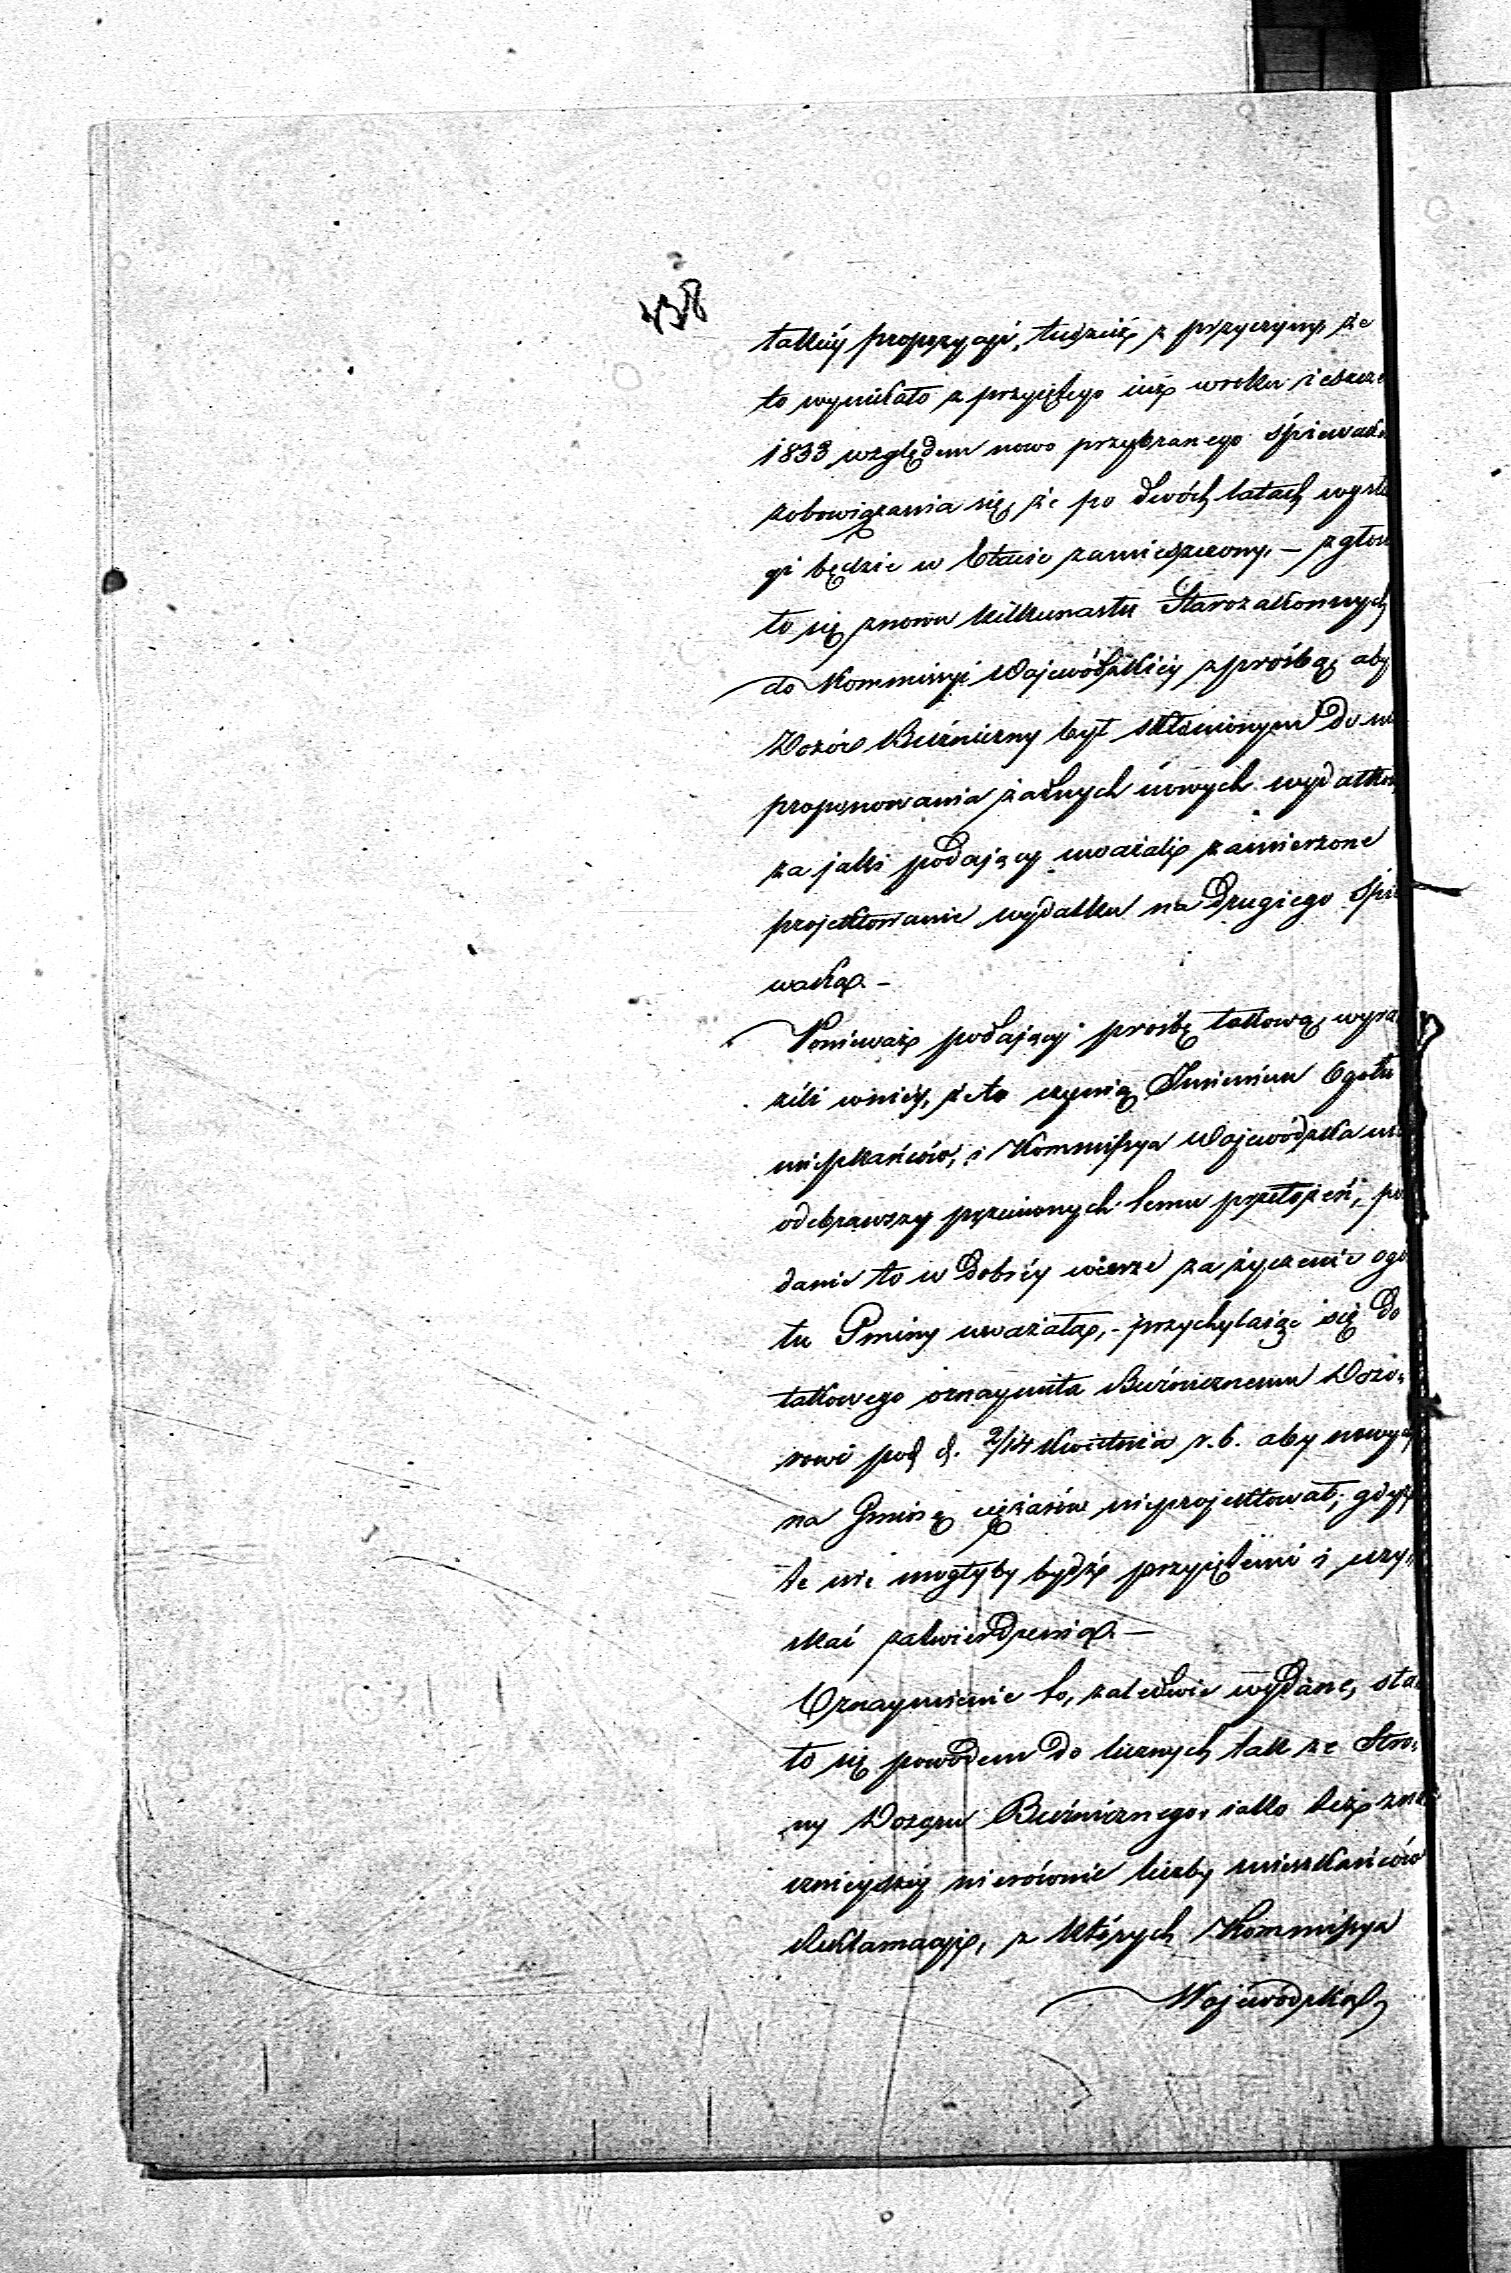 438
takiéy propozycyi, tudzież z przyczyny, że
to wynikało z przyiętego iuż wroku ieszcze
1833 względem nowo przybranego śpiewaka
zobowiązania się, że po dwóch latach
gi będzie w Etacie zamieszczony, —
to się znowu kilkunastu Starozakonnych
do Kommissyi Wojewódzkiéy z prośbą aby
Dozór Bużniczny był skłonionym do
proponowania żadnych nowych wydatków
za jaki podający uważali zamierzone
projektowanie wydatku na Drugiego Śpie
waka. —
Ponieważ podający prośbę takową wyra
zili wniéy, że to czynią Imieniem Ogółu
mieszkańców, i Kommissya Wojewódzka
odebrawszy przeciwnych temu przełożeń, po
danie to w dobréy wierze za życzenie ogó
łu Gminy uważała, - przychylaiąc się do
takowego oznaymiła Bużnicznemu Dozo-
rowi pod d. 2/14 Kwietnia r. b. aby nowych
na Gminę ciężarów nieprojektował, gdyż
te nie mogłyby bydź przyiętemi i uzy-
skać zatwierdzenia. —
Oznaymienie to, zaledwie wydane, sta
ło się powodem do licznych tak ze Stro-
ny Dozoru Bużnicznego, iako też zna
cznieyszéy nierównie liczby mieszkańców
Reklamacyi, z których Kommissya
Wojewódzka